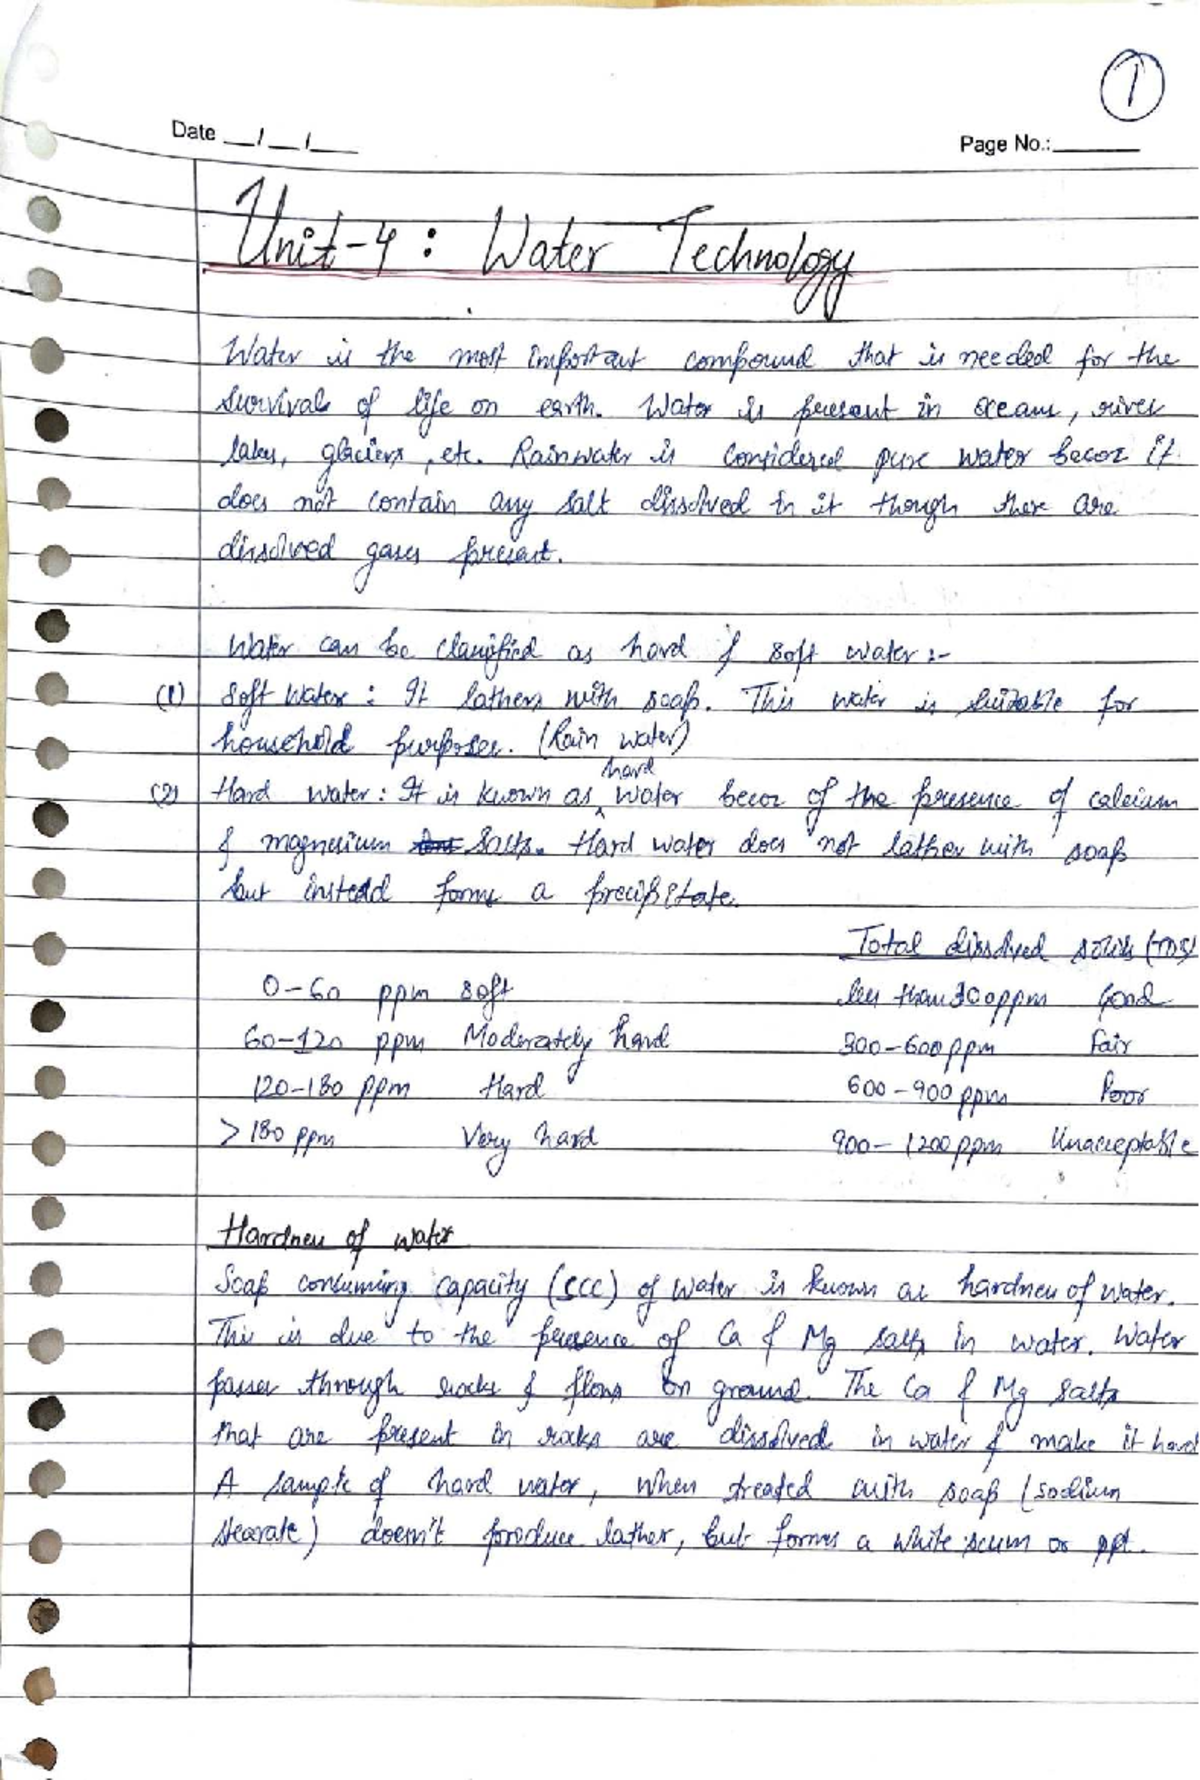 1
Date __/__/__
Page No.:______
Unit-4 : Water Technology
Water is the most important compound that is needed for the
survival of life on earth. Water is present in oceans, river
lakes, glaciers, etc. Rainwater is considered pure water becoz it
does not contain any salt dissolved in it though there are
dissolved gases present.
Water can be classified as hard & soft water :-
(1) Soft Water : It lathers with soap. This water is suitable for
household purposes. (Rain water)
(2) Hard water : It is known as hard water becoz of the presence of calcium
& magnesium salts. Hard water does not lather with soap
but instead forms a precipitate.
Total dissolved solids (TDS)
0-60 ppm soft less than 300ppm Good
60-120 ppm Moderately hard 300-600ppm Fair
120-180 ppm Hard 600-900ppm Poor
> 180 ppm Very hard 900-1200ppm Unacceptable
Hardness of water
Soap consuming capacity (SCC) of water is known as hardness of water.
This is due to the presence of Ca & Mg salts in water. Water
passes through rocks & flows on ground. The Ca & Mg salts
that are present in rocks are dissolved in water & make it hard
A sample of hard water, when treated with soap (sodium
stearate) doesn't produce lather, but forms a white scum or ppt.